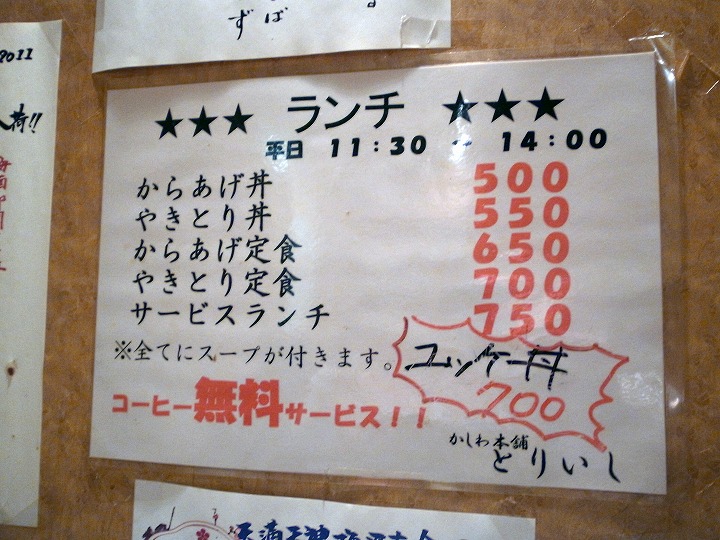 ずば
2011
荷!!
★★★ ランチ ★★★
平日 11:30 ~ 14:00
からあげ丼 500
やきとり丼 550
からあげ定食 650
やきとり定食 700
サービスランチ 750
※全てにスープが付きます。
ユッケ丼
700
コーヒー無料サービス!!
かしわ本舗
とりいし